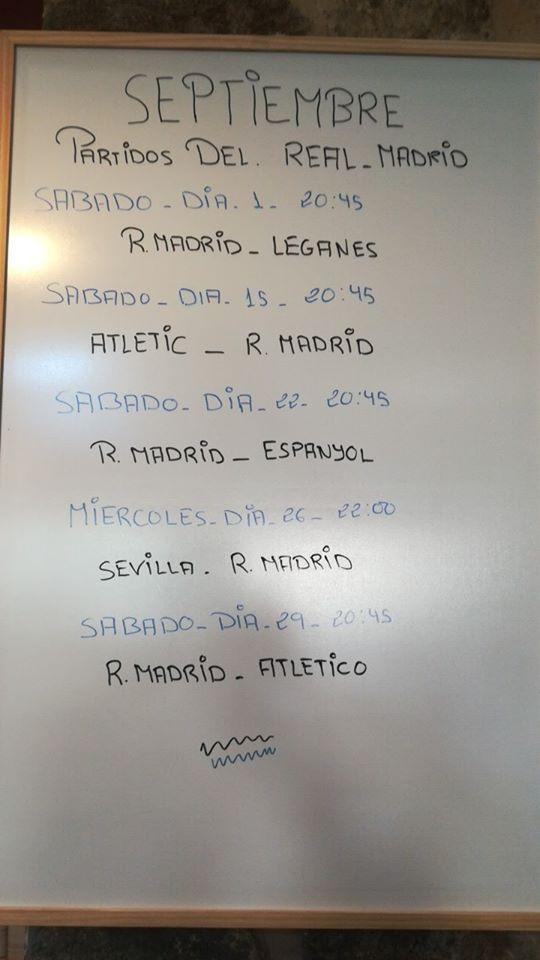 SEPTIEMBRE
PARTIDOS DEL. REAL-MADRID
SABADO - DIA. 1 - 20:45
R. MADRID - LEGANES
SABADO - DIA. 15 - 20:45
ATLETIC - R. MADRID
SABADO - DIA - 22 - 20:45
R. MADRID - ESPANYOL
MIERCOLES - DIA - 26 - 22:00
SEVILLA. R. MADRID
SABADO - DIA - 29 - 20:45
R. MADRID - ATLETICO